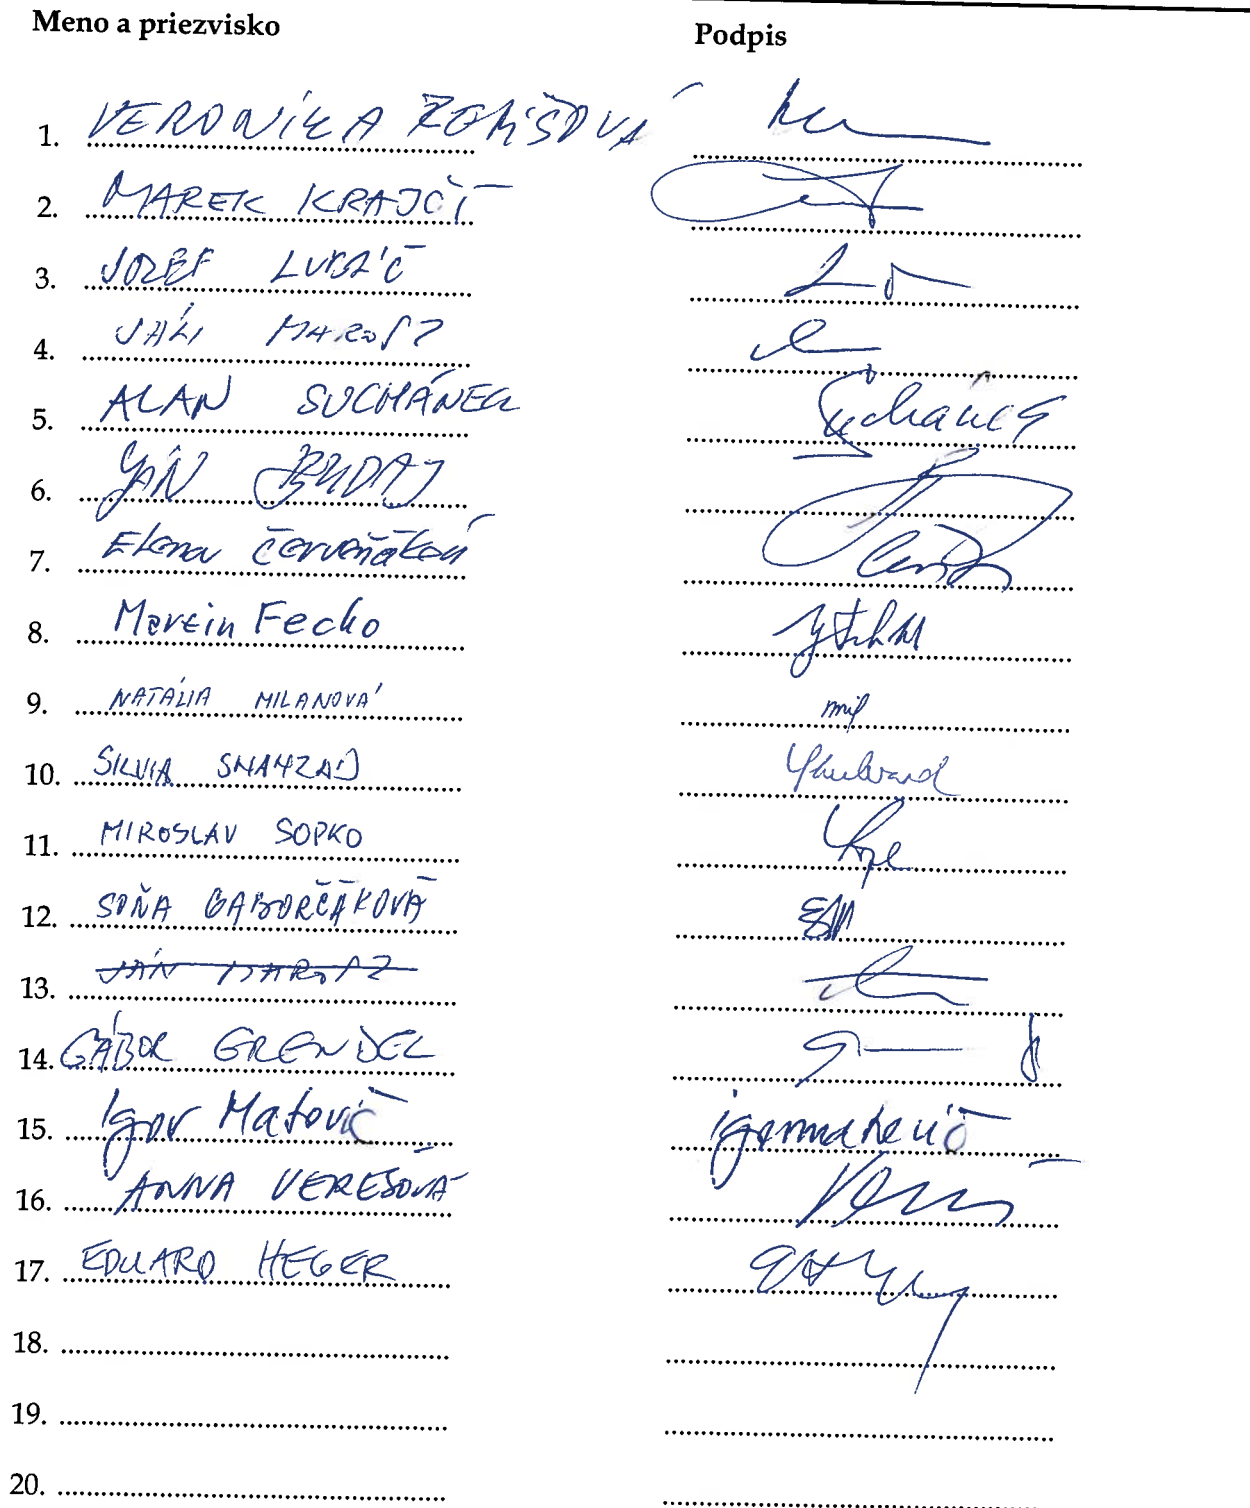 Meno a priezvisko Podpis
1. VERONIKA REMIŠOVÁ
2. MAREK KRAJČÍ
3. JOZEF LUKÁČ
4. JÁN MAROSZ
5. ALAN SUCHÁNEK Suchánek
6. JÁN BUDAJ
7. Elena Červeňáková
8. Martin Fecko
9. NATÁLIA MILANOVÁ mil
10. SILVIA SHAHZAD Shahzad
11. MIROSLAV SOPKO
12. SOŇA GABORČÁKOVÁ
13. JÁN MAROSZ
14. GÁBOR GRENDEL
15. Igor Matovič igormatovič
16. ANNA VEREŠOVÁ
17. EDUARD HEGER
18.
19.
20.